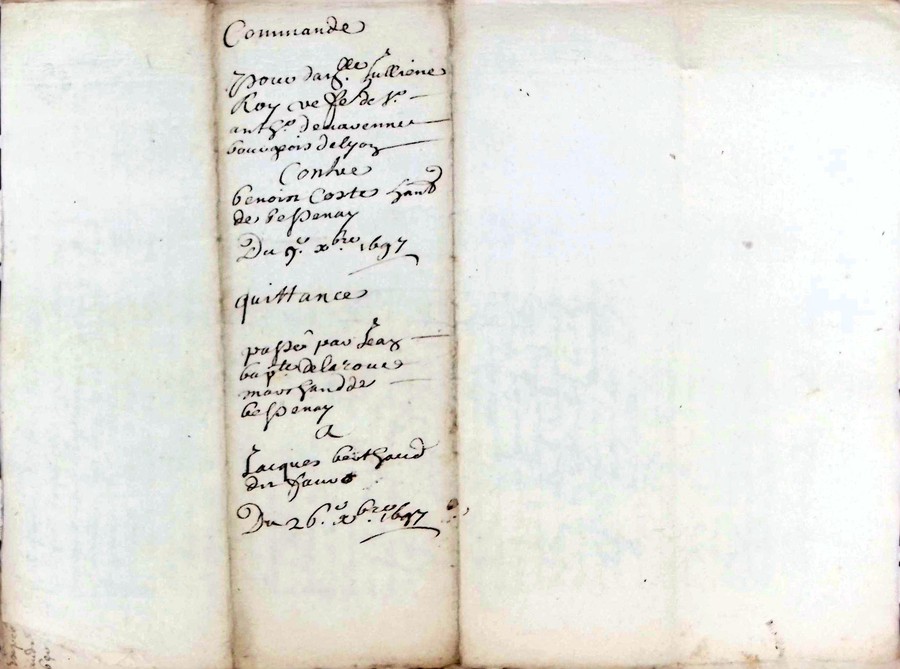 Commande
Pour dam.lle Jullienne
Roy ve fe de Sr
anth.e de
bourgeois de Lyon
Contre
benoist Coste
de bessenay
Du 9.e xbre 1697
quittance
passé par Jean
bapte de la roue
marchand de
bessenay
A
Jacques berthaud
dit
Du 26.e xbre 1697